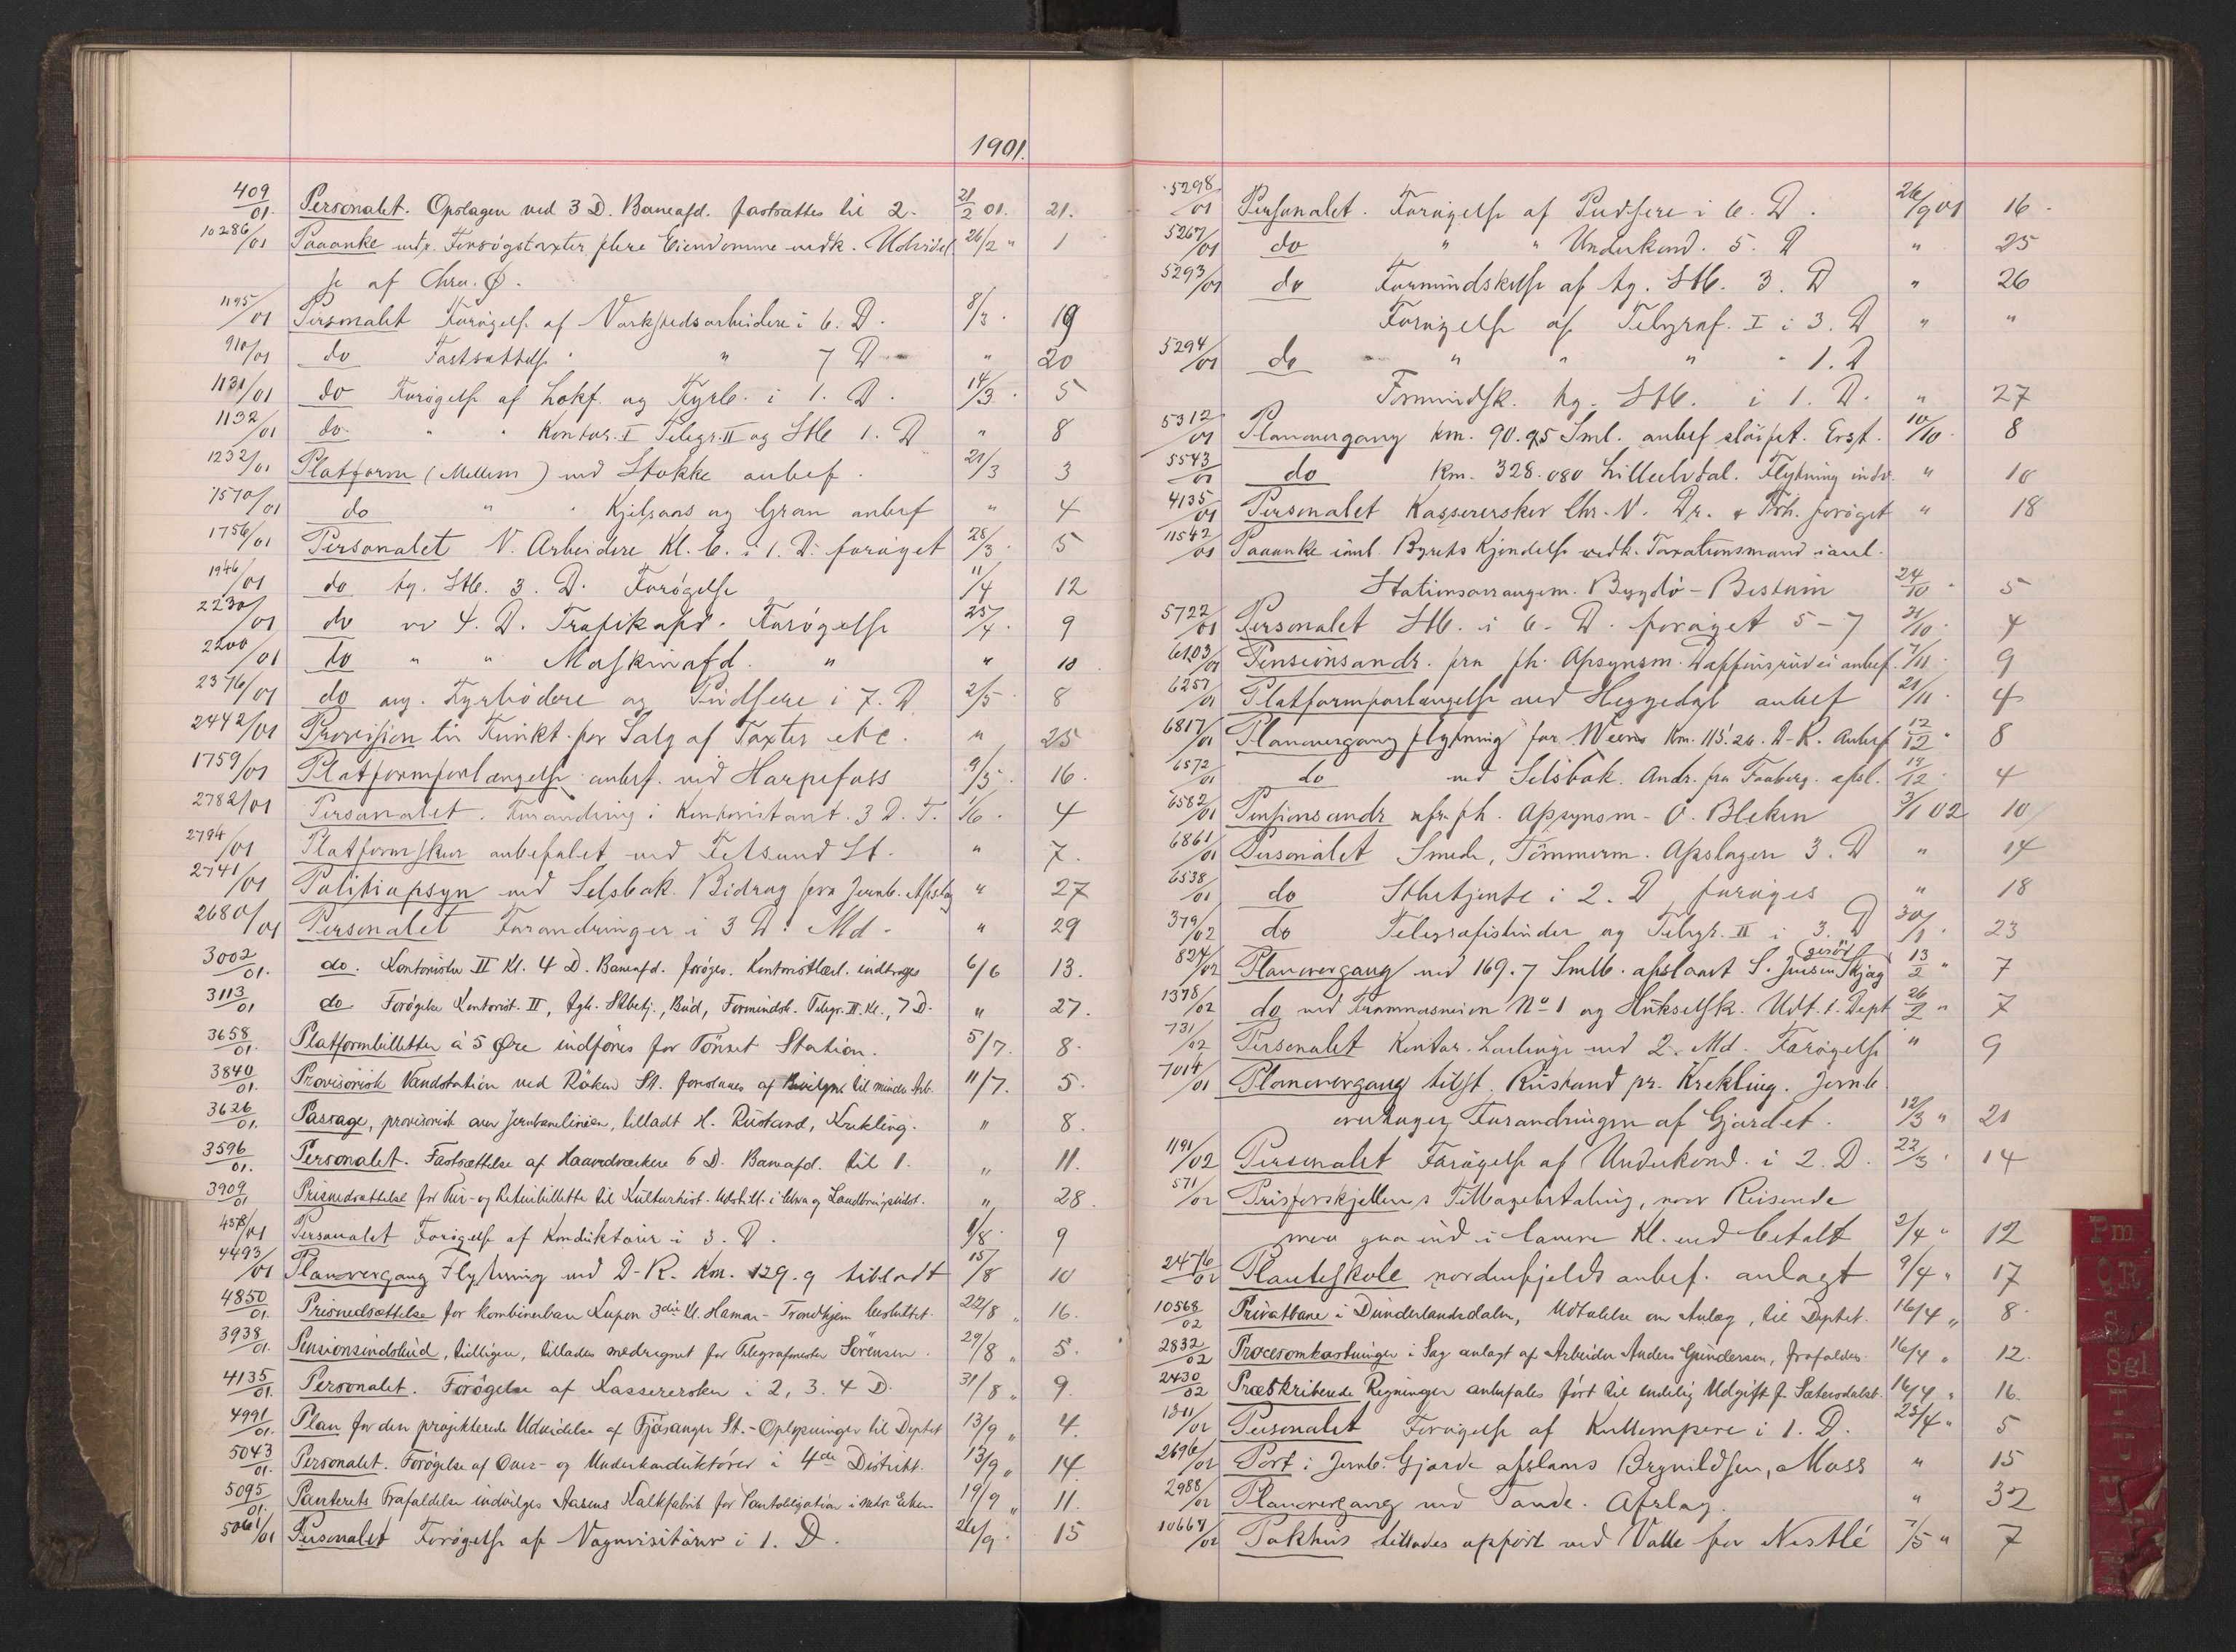 1901.
409/01. Personalet. Opslagen ved 3 D. Baneafd. fastsættes til 2. 21/2 01. 21.
10286/01 Paaanke af Chra. Ø. 26/2 " 1
1195/01 Personalet Forøgelse af Værkstedsarbeidere i 6. D. 8/3 · 19
910/01 do Fastsættelse " " 7 D " 20
1131/01 do Forøgelse af Lokf. og Fyrb. i 1. D. 14/3 · 5
1132/01 do " " Kontor. I Telegr. II og Stb 1. D " 8
1232/01 Platform (Mellem) ved Stokke anbef. 21/3 3
1570/01 do " " Kjelsaas og Gran anbef " 4
1756/01 Personalet V. Arbeidere Kl. b. i 1. D. forøget 28/3 · 5
1946/01 do tg. Stb. 3. D. Forøgelse 11/4 12
2230/01 do ve 4. D. Trafikafd. Forøgelse 25/4 · 9
2200/01 do " " Maskinafd. " " 10
2376/01 do ang. Fyrbødere og Pudsere i 7. D 2/5 · 8
2442/01 Provision til Funkt. for Salg af Taxter etc. " 25
1759/01 Platformforlængelse anbef. ved Harpefoss 9/5 · 16.
2782/01 Personalet. Forandring i Kontoristant. 3 D. T. 1/6 · 4
2794/01 Platformskur anbefalet ved Fetsund St. " 7.
2741/01 Politiopsyn ved Selsbak. Bidrag fra Jernb. Afslag " 27
2680/01 Personalet Forandringer i 3 D. Md. " 29
3002/01. do. Kontorister II Kl. 4 D. Baneafd. forøges. Kontoristlærl. inddrages 6/6 13.
3113/01 do Forøgelse Kontorist. II, tgh. Stbetj., Bud, Formindsk. Telegr. II. Kl., 7 D. " 27.
3658/01. Platformbilletter à 5 Øre indføres for Tønset Station. 5/7. 8.
3840/01. Provisorisk Vandstation ved Røken St. til mindre Arb. 11/7. 5.
3626/01. Passage, provisorisk over Jernbanelinien, tilladt H. Rustand, Krekling. " 8.
3596/01. Personalet. Fastsættelse af Haandværkere 6 D. Baneafd. til 1. " 11.
3909/01 Prisnedsættelse for Tur- og Returbilletter til Kulturhist. Udstill. i Chra og Landbrugsudst. " 28.
4578/01 Personalet Forøgelse af Konduktører i 3. D. 1/8 · 9
4493/01 Planovergang Flytning ved D-R. Km. 129.9 tilladt 15/8 10
4850/01. Prisnedsættelse for kombinerbare Kupon 3die Kl. Hamar-Trondhjem besluttet. 22/8 " 16.
3938/01. Pensionsindskud, tidligere, tillades medregnet for Telegrafmester Sørensen. 29/8 " 5.
4135/01. Personalet. Forøgelse af Kasserersker i 2, 3. 4 D. 31/8 " 9.
4991/01. Plan for den projekterede Udvidelse af Fjøsanger St. - Oplysninger til Deptet 13/9 " 4.
5043/01. Personalet. Forøgelse af Over- og Underkonduktører i 4de Distrikt. 13/9 " 14
5095/01. Panterets Frafaldelse indvilges Aasens Kalkfabrik for Pantobligation i 19/9 " 11.
5061/01 Personalet Forøgelse af Vognvisitører i 1. D. 26/9 · 15
5298/01 Personalet. Forøgelse af Pudsere i 6. D. 26/9 01 16.
5267/01 do " " Underkond. 5. D " 25
5293/01 do Formindskelse af tg. Stb. 3. D " 26
Forøgelse af Telegraf. I i 3. D " "
5294/01 do " " " " 1. D
Formindsk. tg. Stb. i 1. D. " 27
5312/01 Planovergang Km. 90.95 Sml. anbef sløifet. Erst. 10/10 · 8
5543/01 do Km. 328.080 Lilleelvdal. Flytning indv. " 10
4135/01 Personalet Kasserersker Chr. V. Dr. & Trh. forøget " 18
11542/01 Paaanke Byrets Kjendelse vedk. Taxationsmænd
Stationsarrangem. Bygdø - Bestum 24/10 " 5
5722/01 Personalet Stb. i 6. D. forøget 5-7 31/10 · 4
6103/01 Pensionsandr. fra fh. Opsynsm. ei anbef. 7/11 · 9
6257/01 Platformforlængelse ved Heggedal anbef 21/11 · 4
6817/01 Planovergang flytning for Km. 115.26. D-R. Anbef 12/12 " 8
6572/01 do ved Selsbak. Andr. fra Faaberg. afsl. 19/12 · 4
6582/01 Pensionsandr fh. Opsynsm. O. Bleken 3/1 02 10
6861/01 Personalet Smede, Tømmerm. Opslagere 3. D " 14
6538/01 do Stbetjente i 2. D forøges " 18
379/02 do Telegrafistinder og Telegr. II i 3. D 30/1 · 23
827/02 Planovergang ved 169.7 Smlb. afslaaet S. Skjag 13/2 " 7
1378/02 do ved No 1 og Udt. t. Dept 26/2 " 7
731/02 Personalet Kontor. Lærlinge ved 2. Md. Forøgelse " 9
7014/01 Planovergang tilst. Rustand pr. Krekling. Jernb
overtager Forandringen af Gjærdet. 12/3 " 21
1191/02 Personalet Forøgelse af Underkond. i 2. D. 22/3 · 14
571/02 Prisforskjellens Tilbagebetaling, naar Reisende
maa gaa ind i lavere Kl. end betalt 2/4 " 12
2476/02 Planteskole nordenfjelds anbef. anlagt 9/4 " 17
10568/02 Privatbane i Dunderlandsdalen, Udtalelse om Anlæg, til Deptet. 16/4 " 8.
2832/02 Procesomkostninger i Sag anlagt af Arbeider Anders Gundersen, frafaldes. 16/4 " 12.
2430/02 Præskriberede Regninger anbefales ført til endelig Udgift f. Sætersdalsb. 16/4 " 16.
1311/02 Personalet Forøgelse af Kullempere i 1. D. 23/4 " 5
2696/02 Port i Jernb. Gjærde afslaaes Brynildsen, Moss " 15
2988/02 Planovergang ved Tande. Afslag. " 32
10667/02 Pakhus tillades opført ved Valle for Nestlé 7/5 " 7
Pm
QR
S
Sgl